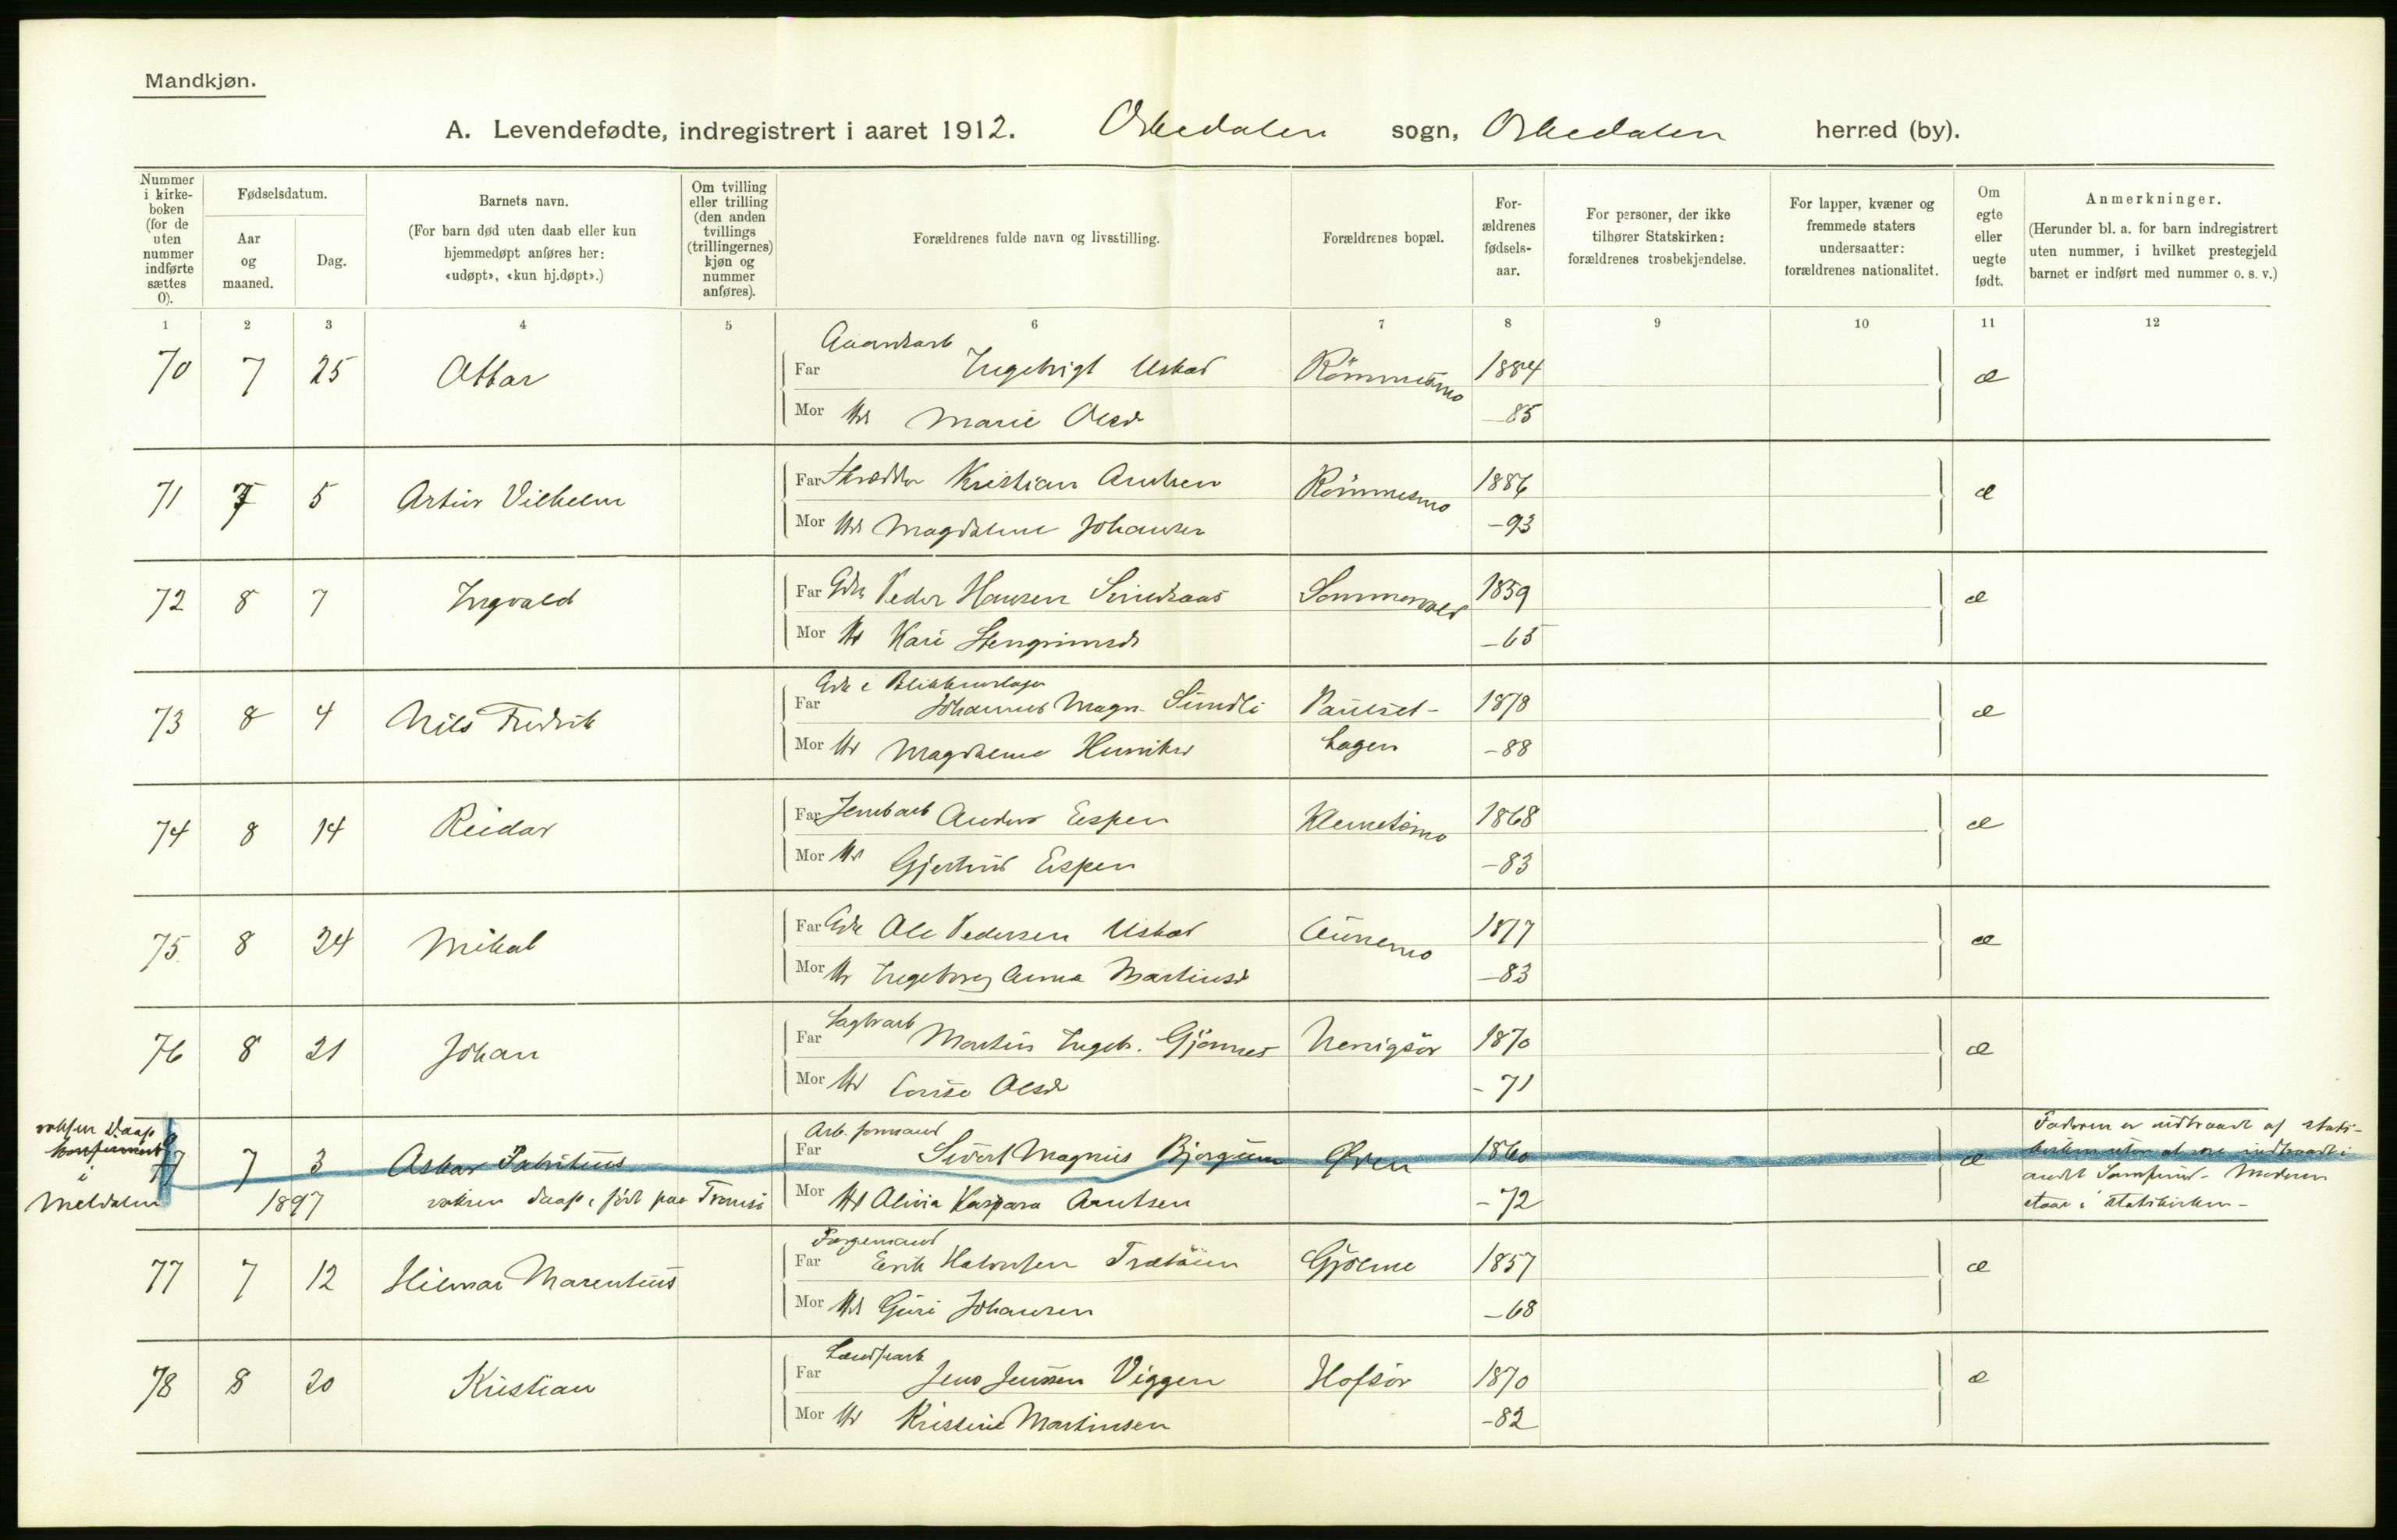 Mandkjøn.
A. Levendefødte, indregistrert i aaret 1912. Orkedalen sogn, Orkedalen herred (by).
Nummer i kirke-boken (for de uten nummer indførte sættes 0).
Fødselsdatum.
Aar og maaned.
Dag.
Barnets navn.
(For barn død uten daab eller kun hjemmedøpt anføres her: «udøpt», «kun hj.døpt».)
Om tvilling eller trilling (den anden tvillings (trillingernes) kjøn og nummer anføres).
Forældrenes fulde navn og livsstilling.
Forældrenes bopæl.
For-ældrenes fødsels-aar.
For personer, der ikke tilhører Statskirken: forældrenes trosbekjendelse.
For lapper, kvæner og fremmede staters undersaatter: forældrenes nationalitet.
Om egte eller uegte født.
Anmerkninger.
(Herunder bl. a. for barn indregistrert uten nummer, i hvilket prestegjeld barnet er indført med nummer o. s. v.)
1 2 3 4 5 6 7 8 9 10 11 12
70 7 25 Far Ingebrigt Uskad Römmesmo 1884 æ
Mor Marie Olsd -85
71 7 5 Artur Vilhelm Far Kristian Römmesmo 1886 æ
Mor Magdalene Johansen -93
72 8 7 Ingvald Far Gdr Peder Hansen 1859 æ
Mor Kari Stengrimsd -65
73 8 4 Nils Fredrik Far Johannes Magn. Sundli 1878 æ
Mor Magdalena -88
74 8 14 Reidar Far Anders Espen Klemetsmo 1868 æ
Mor Gjertrud Espen -83
75 8 24 Mikal Far Gdr Ole Pedersen Uskad Aunemo 1877 æ
Mor Ingeborg Anna Martinusd -83
76 8 21 Johan Far Sagbrarb Martin Ingebr. Gjönnes 1870 æ
Mor Louise Olsd -71
voksen Daap
i
Meldalen
77 7 3 Askar Far Arb. formand Sivert Magnus Bjørgum Øren 1860 æ
1897 voksen daap, født paa Tromsö Mor Olivia Kaspara -72
Faderen er udtraadt af stats-
kirken uten at være indtraadt i
andet Samfund - Moderen
staar i statskirken -
77 7 12 Hilmar Marentius Far Forgemand Erik Halvorsen Gjölme 1857 æ
Mor Guri Johansen -68
78 8 20 Kristian Far Jens Jenssen Viggen Hofsör 1870 æ
Mor Kristine Martinsen -82